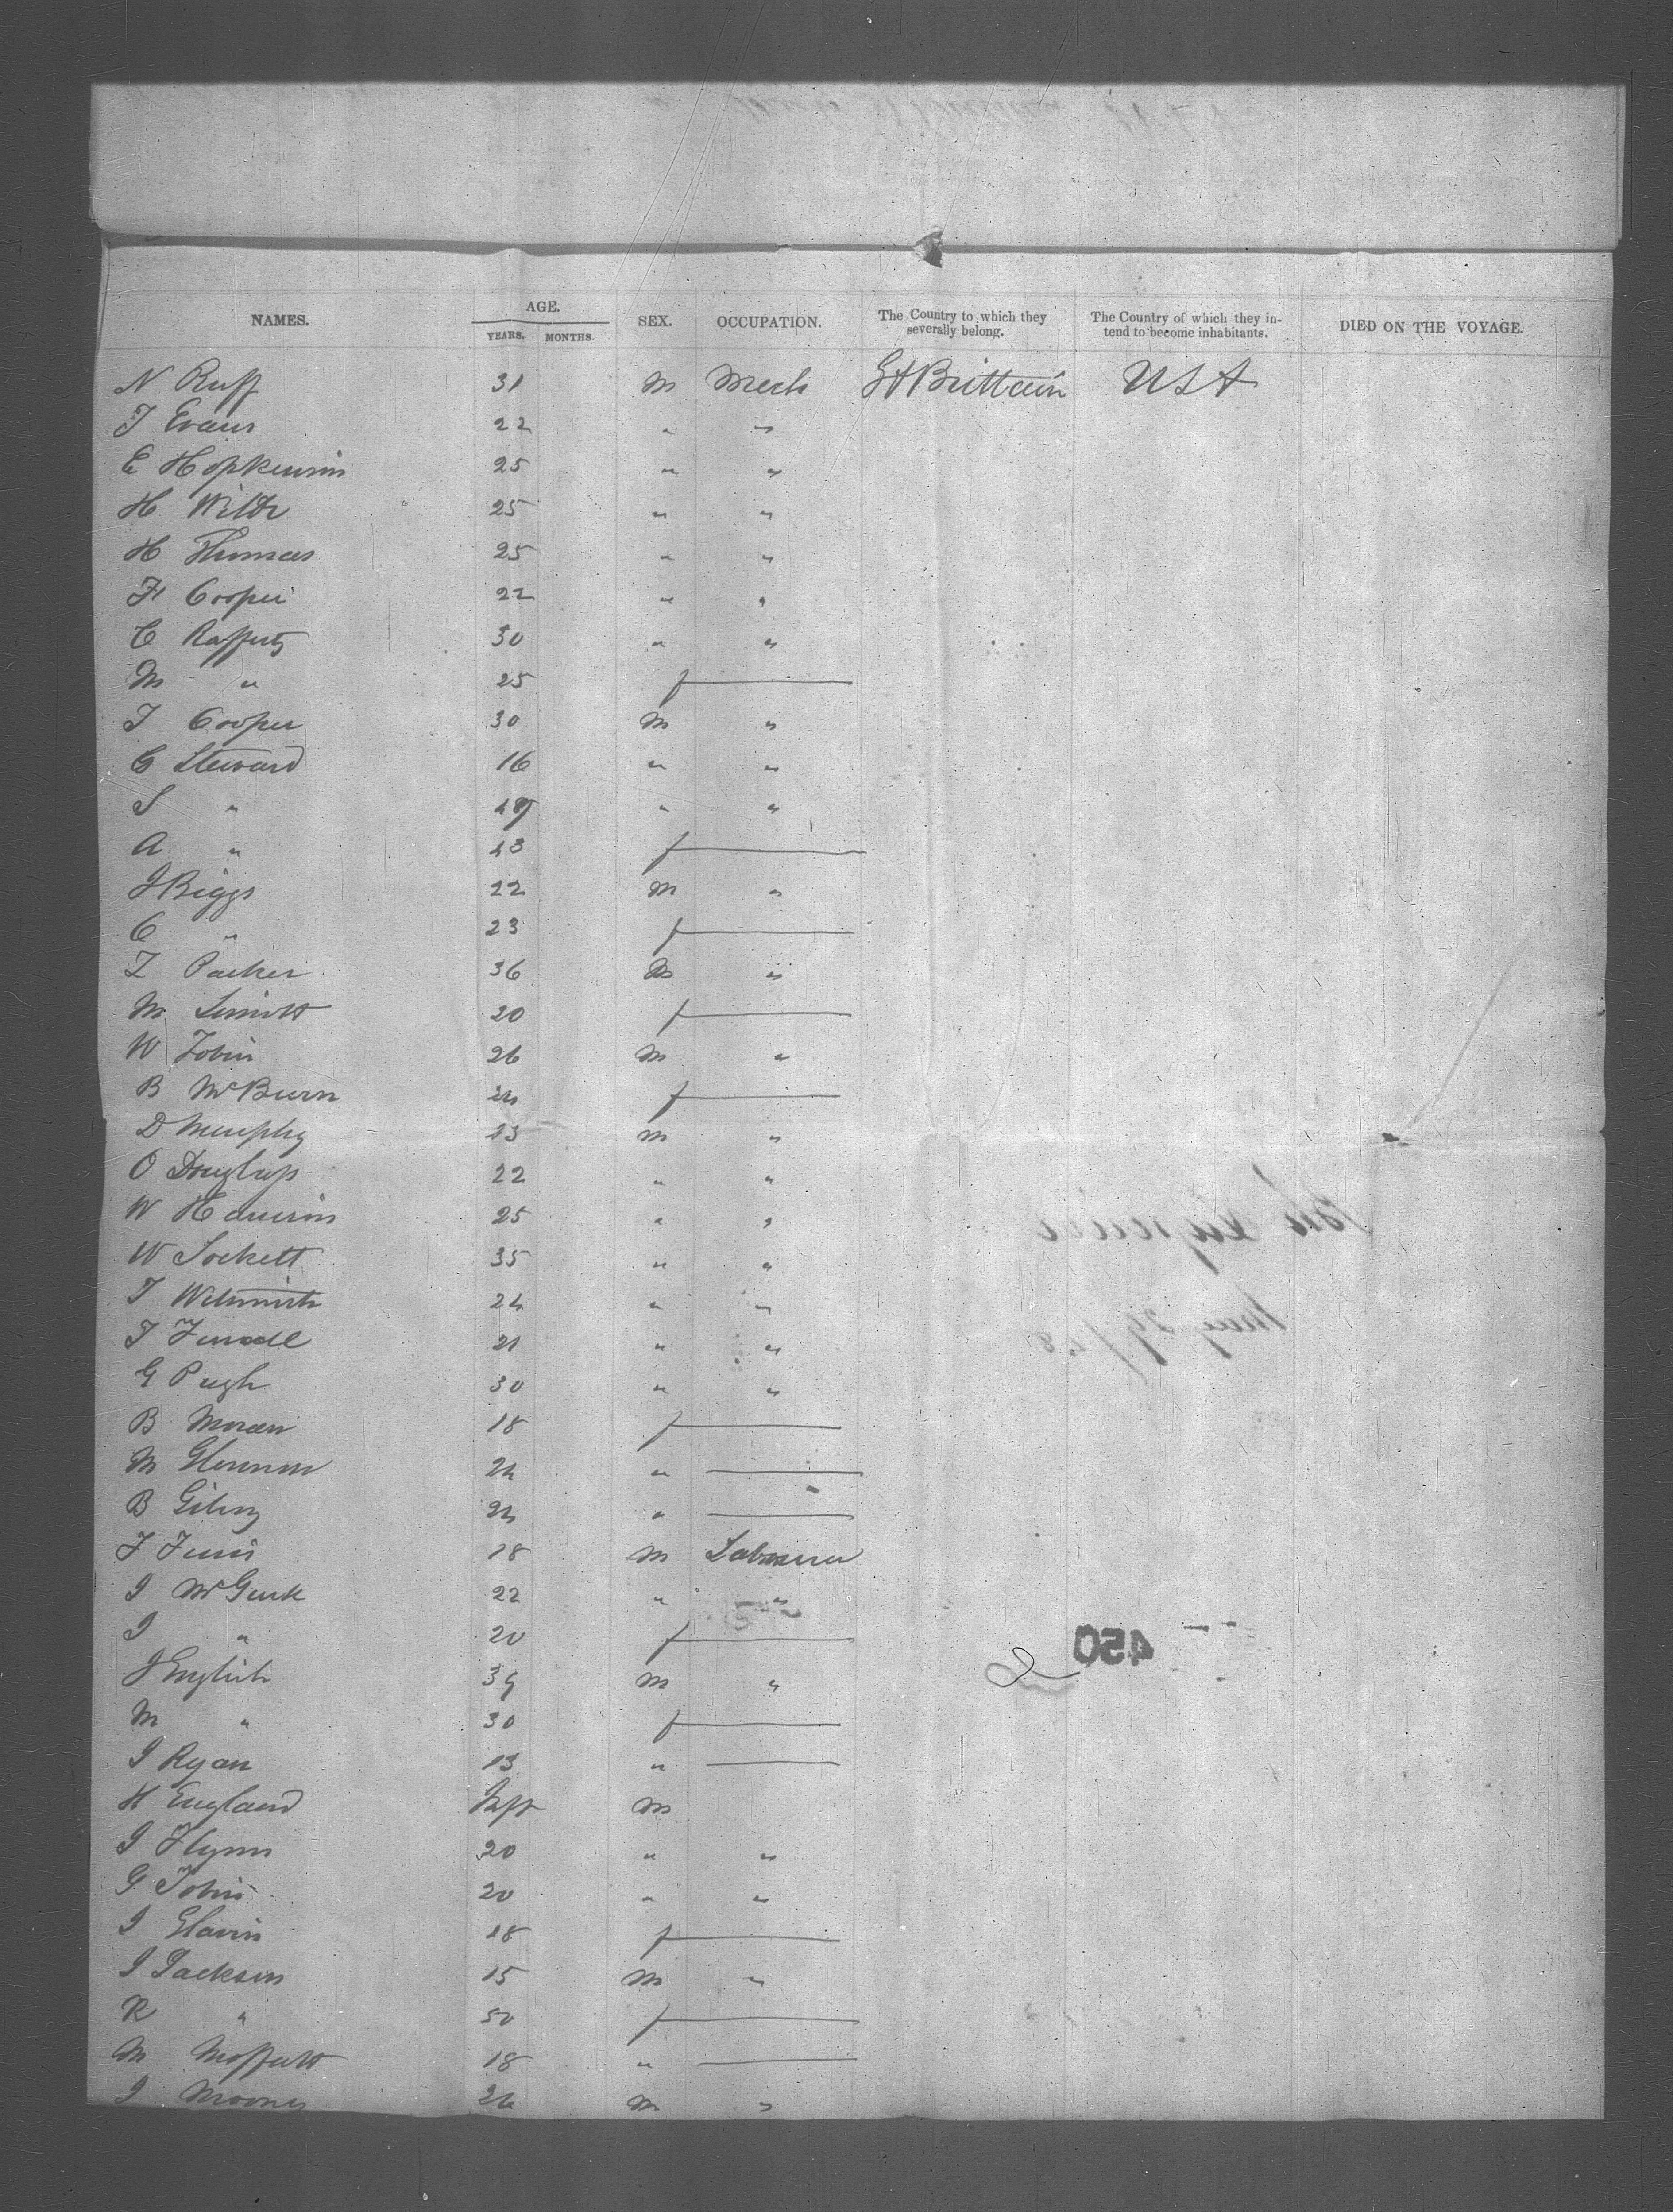 NAMES. AGE. SEX. OCCUPATION. The Country to which they severally belong. The Country of which they intend to become inhabitants. DIED ON THE VOYAGE.
YEARS. MONTHS.
N Ruff 31 M Mech Gt Brittain USA
T Evans 22 " "
E Hopkinson 25 " "
H Wilde 25 " "
H Thomas 25 " "
F Cooper 22 " "
C Rafferty 30 " "
M " 25 f —
T Cooper 30 M "
G Steward 16 " "
S " " "
A " f —
J Biggs 22 M "
C " 23 f —
T Parker 36 M "
M 20 f —
W Tobin 26 M "
B McBurn 24 f —
D Murphy 23 M "
O Douglass 22 " "
W 25 " "
W Sockett 35 " "
T 24 " "
T 21 " "
G Pugh 30 " "
B Moran 18 f —
M 24 " —
B 24 " —
18 M Labourer
J McGurk 22 " "
J " 20 f —
J English 39 M "
M " 30 f —
J Ryan 13 " —
H England Inft M
J Flynn 20 " "
G Tobin 20 " "
J Glavin 18 f —
J Jackson 15 M "
R " 50 f —
M Moffatt 18 " —
J Mooney 26 M "
450